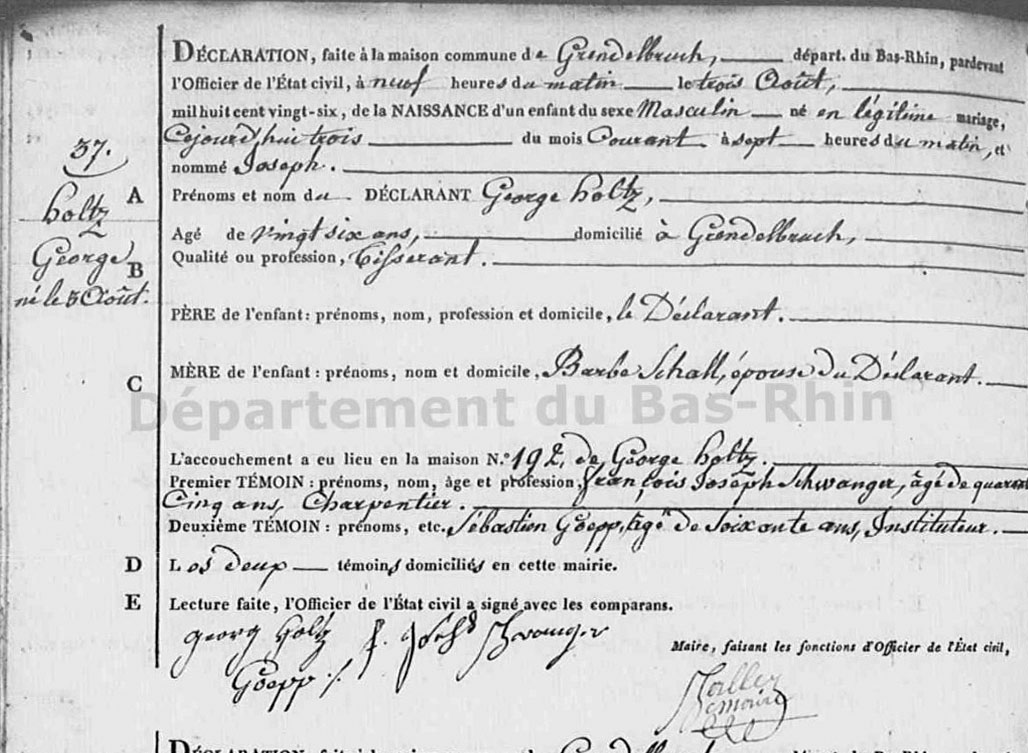 DÉCLARATION, faite à la maison commune de Grendelbruch, départ. du Bas-Rhin, pardevant
l'Officier de l'État civil, à neuf heures du matin le trois Août,
mil huit cent vingt-six, de la NAISSANCE d'un enfant du sexe Masculin né en légitime mariage,
Cejourd'hui trois du mois Courant à sept heures du matin, et
nommé Joseph.
37.
holtz
George
né le 3 Août.
A
Prénoms et nom du DÉCLARANT George holtz,
Agé de vingt six ans, domicilié à Grendelbruch,
B
Qualité ou profession, Tisserant.
PÈRE de l'enfant: prénoms, nom, profession et domicile, le Déclarant.
C
MÈRE de l'enfant : prénoms, nom et domicile, Barbe Schall, épouse du Déclarant.
Département du Bas-Rhin
L'accouchement a eu lieu en la maison N.° 192, de George holtz.
Premier TÉMOIN : prénoms, nom, âge et profession, françois Joseph Schwanger, âgé de quarante
Cinq ans, Charpentier.
Deuxième TÉMOIN : prénoms, etc. Sébastien Goepp, âgé de Soixante ans, Instituteur.
D
Les deux témoins domiciliés en cette mairie.
E
Lecture faite, l'Officier de l'État civil a signé avec les comparans.
Georg Holtz f. Joseph Schwanger
Goepp
Maire, faisant les fonctions d'Officier de l'État civil,
DÉCLARATION